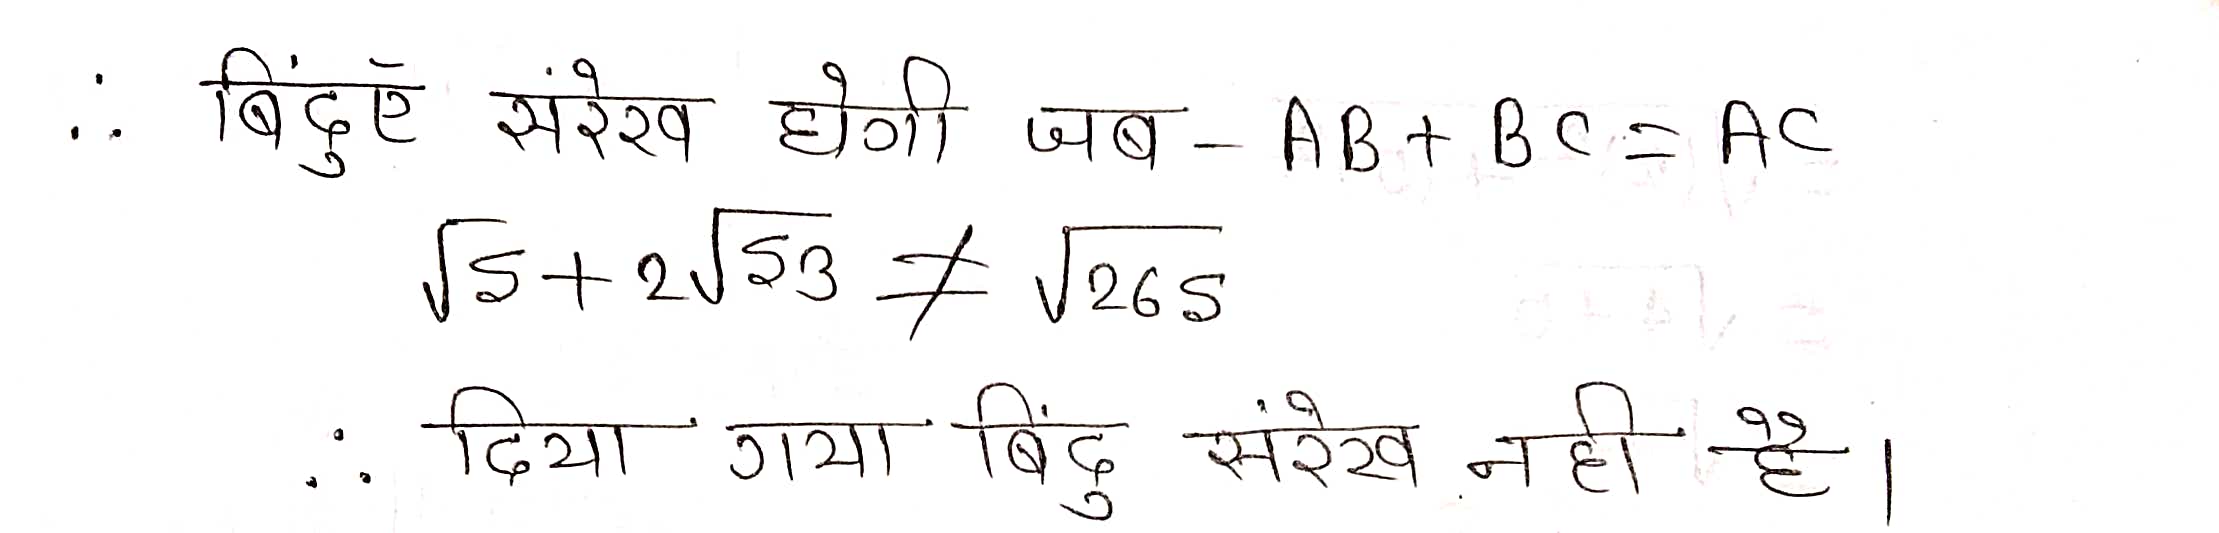 ∴ बिंदुएँ संरेख होगी जब - AB + BC = AC
√5 + 2√53 ≠ √265
∴ दिया गया बिंदु संरेख नही है।